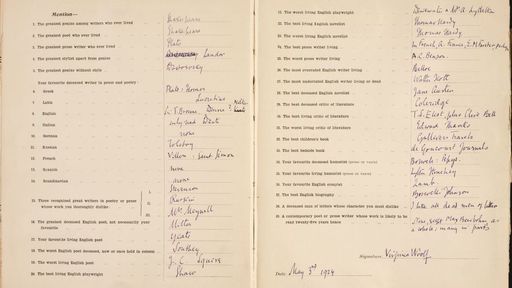 Mention—
1. The greatest genius among writers who ever lived Shakespeare
2. The greatest poet who ever lived Shakespeare
3. The greatest prose writer who ever lived Plato
4. The greatest stylist apart from genius Landor
5. The greatest genius without style Dostoevsky
Your favourite deceased writer in prose and poetry:
6. Greek Plato. Homer
7. Latin Lucretius
8. English Sir T. Browne. Donne
9. Italian only read Dante
10. German none
11. Russian Tolstoy
12. French Villon. Saint Simon
13. Spanish none
14. Scandinavian none
15. Three recognised great writers in poetry or prose whose work you thoroughly dislike
I. Meredith
II. Ruskin
III. Mrs Meynell
16. The greatest deceased English poet, not necessarily your favourite Milton
17. Your favourite living English poet Yeats
18. The worst English poet deceased, now or once held in esteem Southey
19. The worst living English poet J. C. Squire
20. The best living English playwright Shaw
21. The worst living English playwright
22. The best living English novelist Thomas Hardy
Thomas Hardy
24. The best prose writer living In French, A. France,
25. The worst prose writer living A. C. Benson
26. The most overrated English writer living Belloc
27. The most underrated English writer living or dead Walter Scott
28. The best deceased English novelist Jane Austen
29. The best deceased critic of literature Coleridge
30. The best living critic of literature T. S. Eliot, plus Clive Bell
31. The worst living critic of literature
32. The best children's book Gullivers Travels
33. The best bedside book de Goncourt Journals
34. Your favourite deceased humorist (prose or verse)
35. Your favourite living humorist (prose or verse) Lytton Strachey
36. Your favourite English essayist Lamb
37. The best English biography Boswells Johnson
38. A deceased man of letters whose character you most dislike I like all dead men of letters
39. A contemporary poet or prose writer whose work is likely to be read twenty-five years hence Max Beerbohm, as a whole; many in parts
Signature, Virginia Woolf
Date: May 3rd 1924